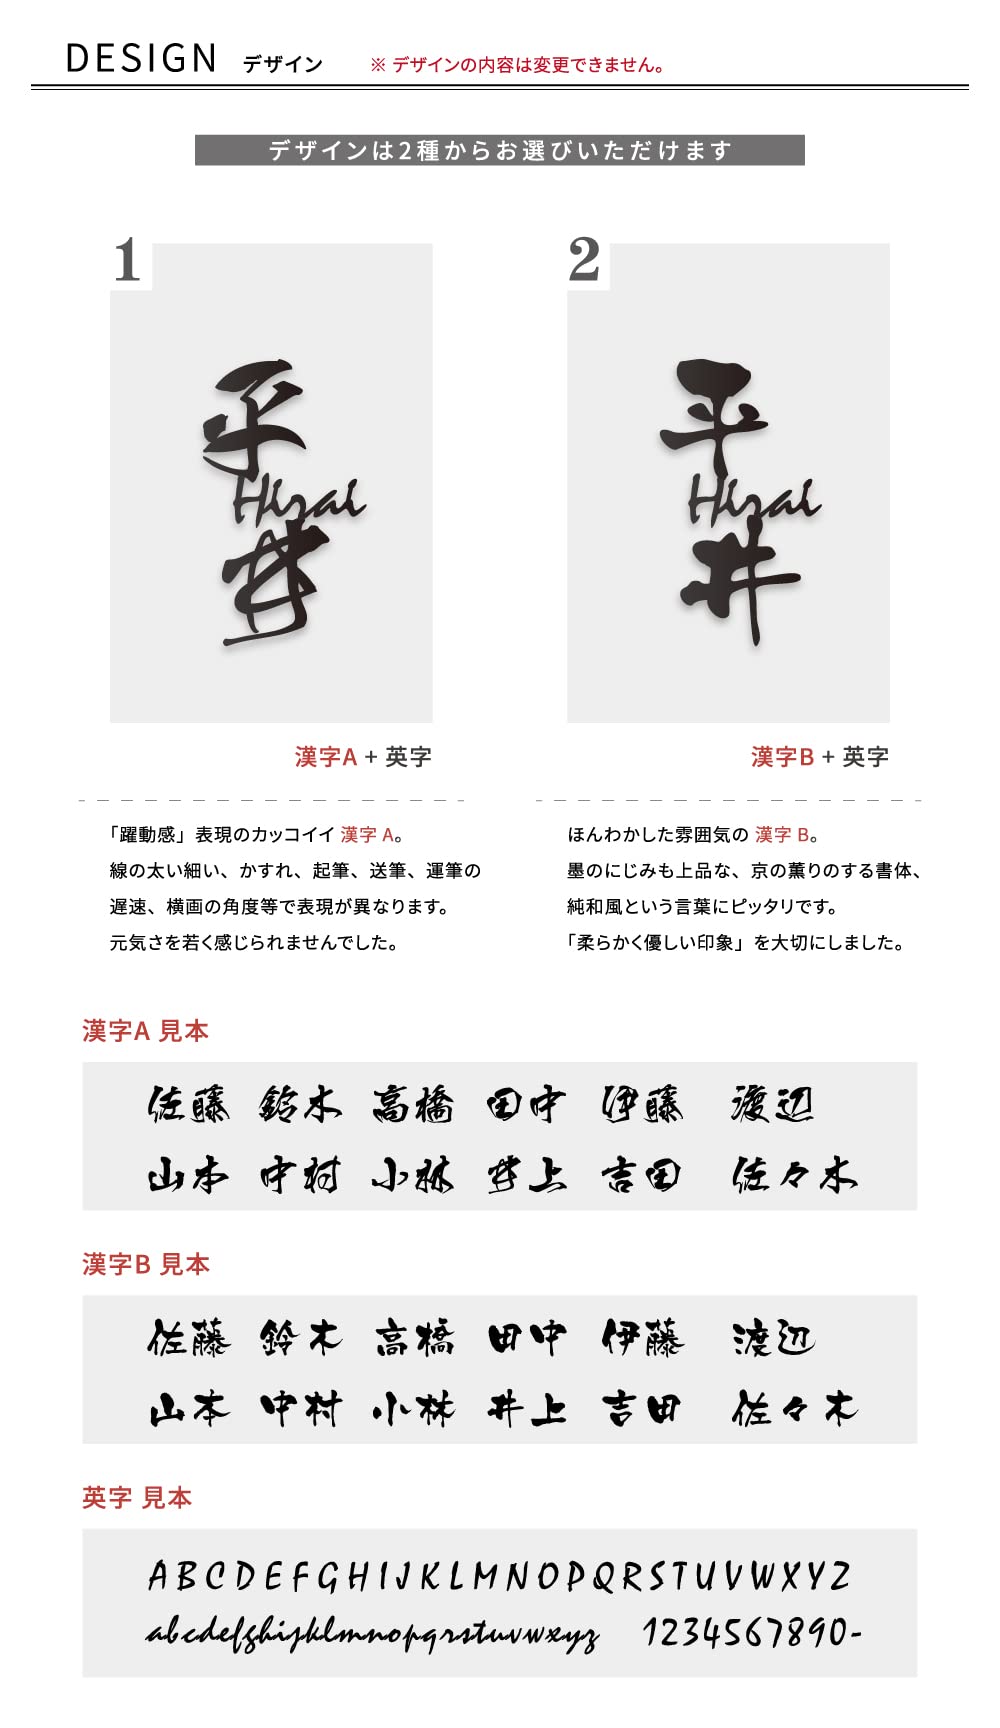 DESIGN デザイン ※ デザインの内容は変更できません。
デザインは2種からお選びいただけます
1
平
Hirai
井
漢字A + 英字
「躍動感」表現のカッコイイ 漢字 A。
線の太い細い、かすれ、起筆、送筆、運筆の
遅速、横画の角度等で表現が異なります。
元気さを若く感じられませんでした。
2
平
Hirai
井
漢字B + 英字
ほんわかした雰囲気の 漢字 B。
墨のにじみも上品な、京の薫りのする書体、
純和風という言葉にピッタリです。
「柔らかく優しい印象」を大切にしました。
漢字A 見本
佐藤 鈴木 高橋 田中 伊藤 渡辺
山本 中村 小林 井上 吉田 佐々木
漢字B 見本
佐藤 鈴木 高橋 田中 伊藤 渡辺
山本 中村 小林 井上 吉田 佐々木
英字 見本
ABCDEFGHIJKLMNOPQRSTUVWXYZ
abcdefghijklmnopqrstuvwxyz 1234567890-